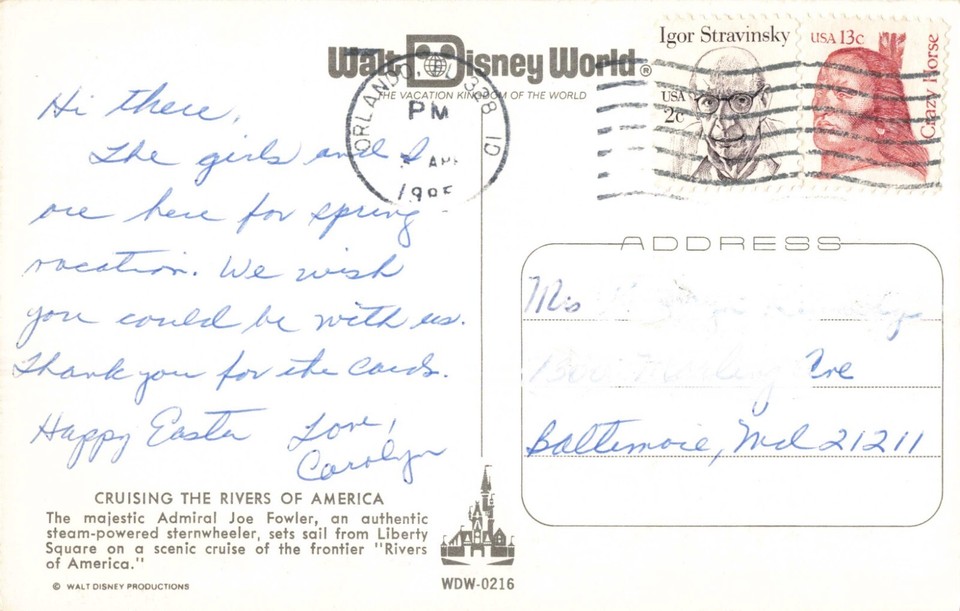 Walt Disney World®
THE VACATION KINGDOM OF THE WORLD
Igor Stravinsky
USA
2c
USA 13c
Crazy Horse
ORLANDO, FL 328
PM
APR
Hi there,
The girls and I
are here for spring
vacation. We wish
you could be with us.
Thank you for the cards.
Happy Easter Love,
Carolyn
ADDRESS
Ms
Ave
Baltimore, Md 21211
CRUISING THE RIVERS OF AMERICA
The majestic Admiral Joe Fowler, an authentic
steam-powered sternwheeler, sets sail from Liberty
Square on a scenic cruise of the frontier "Rivers
of America."
© WALT DISNEY PRODUCTIONS
WDW-0216